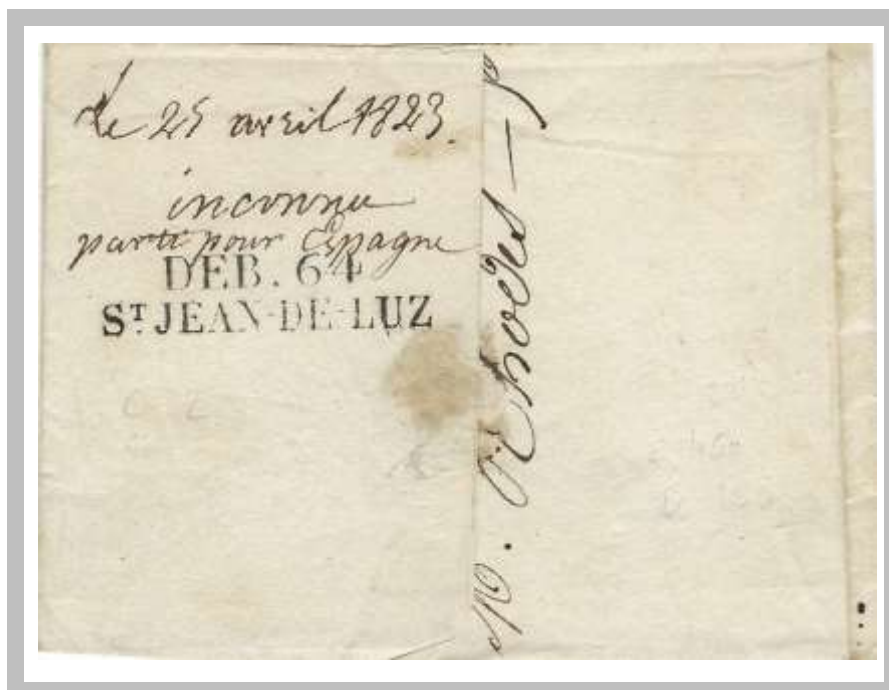 Le 25 avril 1823.
inconnu
parti pour Espagne
DEB. 64
ST JEAN-DE-LUZ